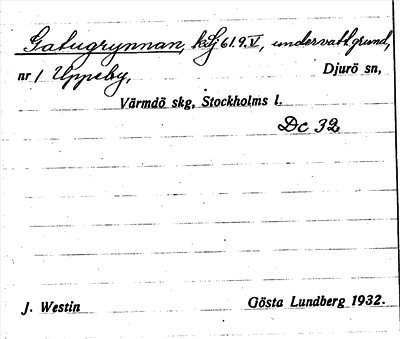 Gatugrynnan, kSj 61.9.V, undervatt.grund,
nr 1 Uppeby, Djurö sn,
Värmdö skg, Stockholms l.
Dc 32
J. Westin Gösta Lundberg 1932.